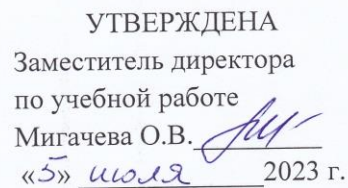 УТВЕРЖДЕНА
Заместитель директора
по учебной работе
Мигачева О.В.
«5» июля 2023 г.